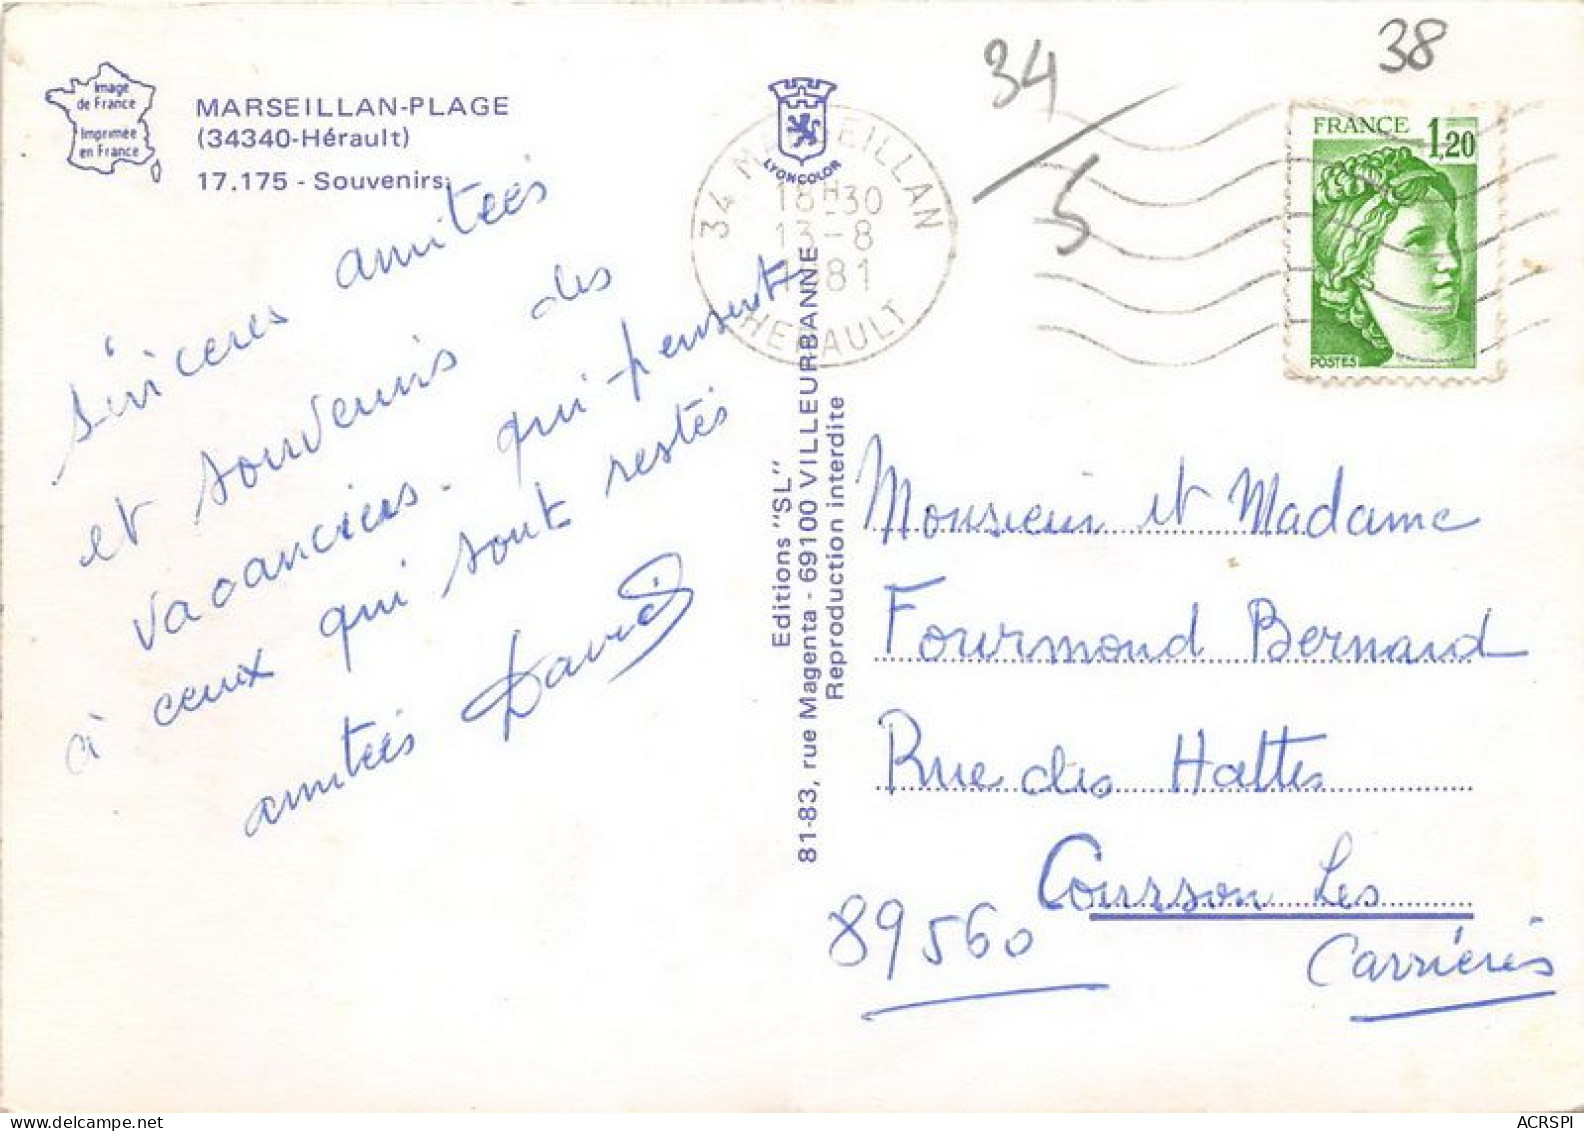 Image
de France
Imprimée
en France
MARSEILLAN-PLAGE
(34340-Hérault)
17.175 - Souvenirs.
Sincères amitiés
et souvenirs des
vacanciers. qui pensent
à ceux qui sont restés
amitiés David
LYONCOLOR
34 MARSEILLAN
18H30
13-8
1981
HERAULT
34/5
38
FRANCE 1,20
POSTES
Editions "SL"
81-83, rue Magenta - 69100 VILLEURBANNE
Reproduction interdite
Monsieur et Madame
Fourmond Bernard
Rue des Haltes
Courson Les
89560 Carrières
ACRSPI